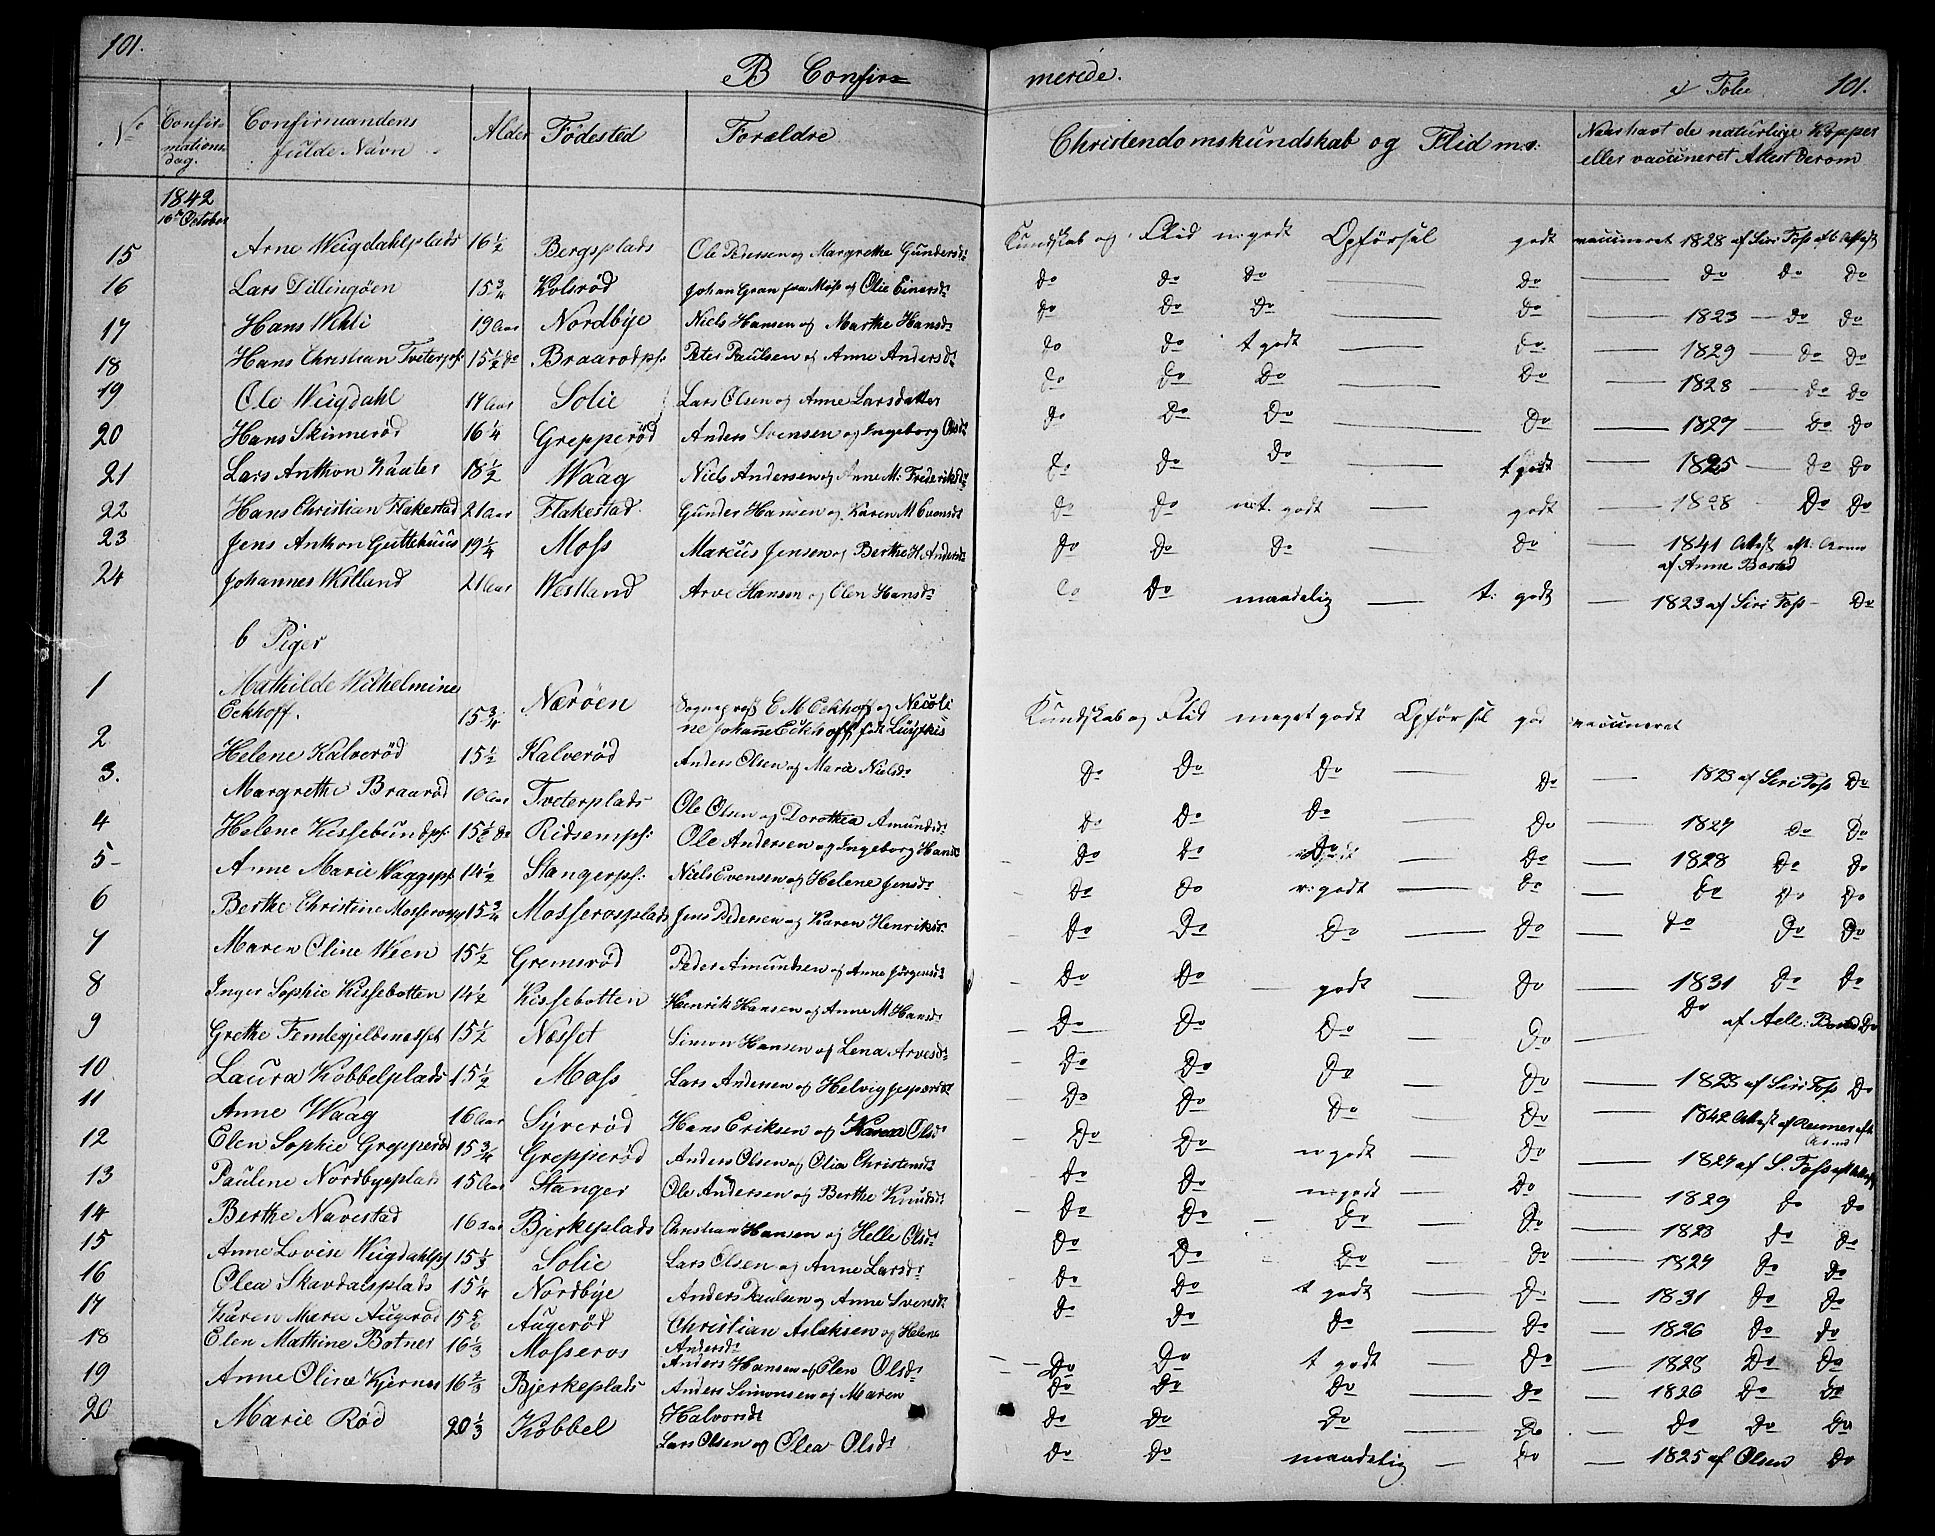 101.
B Confir=
merede.
Folie 101.
No
Confir-
mations
dag.
Confirmandens
fulde Navn
Alder
Födested
Forældre
Christendomskundskab og Flid m.v.
Naar havt de naturlige Kopper
eller vaccineret Attest derom
1842
16de October
15 Arne Weigdahlplads 16½ Bergsplads Ole Pedersen og Margrethe Gundersdr Kundskab og Flid m: godt Opförsel godt vaccineret 1828 af Siri Foss aft: Attest
16 Lars Dillingöen 15¾ Kolsröd Johan Gran fra Moss og Olie Einersdr do do do — do — do do do
17 Hans Wihli 19 Aar Nordbye Niels Hansen og Marthe Hansdr do do do — do — 1823 — do do
18 Hans Christian Tveterps: 15½ do Braarodps: Peter Paulsen og Anne Andersdr do do t godt — do — 1829 — do do
19 Ole Weigdahl 17 Aar Solie Lars Olsen og Anne Larsdatter do do do — do — 1828 — do do
20 Hans Skinneröd 16¼ Grepperöd Anders Svensen og Ingeborg Olsdr do do do — do — 1827 — do do
21 Lars Anthon 18½ Waag Niels Andersen og Anne M: Frederiksdr do do do — t godt — 1825 — do do
22 Hans Christian Flakestad 21 Aar Flakestad Gunder Hansen og Karen M Evensdr do do m: t. godt — godt — 1828 — do do
23 Jens Anthon Guttehuus 19¼ Moss Marcus Jensen og Berthe H. Andersdr do do do — do — 1841 Attest
af Anne Bastad
24 Johannes Westland 21 Aar Westland Arve Hansen og Olen Hansdr do do maadelig — t: godt — 1823 af Siri Foss — do
b Piger
1 Mathilde Wilhelmine
Eckhoff. 15¾ Næröen Sognepræst E M Eckhoff og Nicoli
ne Johanne Eckhoff, födt Kundskab og Flid meget godt Opförsel god vaccineret
2 Helene Kalveröd 15½ Kalveröd Anders Olsen og Marie Nielsdr do do do — do — 1823 af Siri Foss do
3. Margrethe Braaröd 16 Aar Tveterplads Ole Olsen og Dorothea Amundsdr do do do — do — 1827 do do
4 Helene Kissebundps: 15½ do Ridsemps: Ole Andersen og Ingeborg Hansdr do do do — do — 1828 do do
5 Anne Marie Waagsps: 14½ Stangerps: Niels Evensen og Helene Jensdr do do m: godt — do — do do do
6 Berthe Christine Mosserosps 15¾ Mosserosplads Jens Pedersen og Karen Henriksdr do do do — do — do do do
7 Maren Oline Wien 15½ Gremseröd Peder Amundsen og Anne Jörgensdr do do — godt — do — 1831 do do
8 Inger Sophie Kissebotten 14½ Kissebotten Henrik Hansen og Anne M Hansdr do do do — do — do af Aell: Bastad do
9 Grethe Femtegjelbenesset 15½ Næsset Simon Hansen og Lena Arvesdr do do do — do — 1828 af Siri Foss do
10 Laura Kobbelplads 15½ Moss Lars Andersen og Helvig Jespersdr do do do — do — 1842 Attest af
11 Anne Waag 16 Aar Syveröd Hans Eriksen og Karen Olsdr do do m godt — do — 1827 af S. Foss aft Attest
12 Elen Sophie Grepperöd 15¾ Grepperöd Anders Olsen og Olia Christensdr do do m: godt — do — 1829 do do
13 Paulene Nordbyeplads 15 Aar Stanger Ole Andersen og Berthe Knudsdr do do — do — do — 1828 do do
14 Berthe Navestad 16 aar Bjerkeplads Christian Hansen og Helle Olsdr do do do — do — 1827 do do
15 Anne Lovise Weigdahlsps 15⅓ Solie Lars Olsen og Anne Larsdr do do t godt — do — 1831 do do
16 Olea Skavdalsplads 15¼ Nordbye Anders Paulsen og Anne Svensdr do do do — do — 1826 do do
17 Karen Marie Augeröd 15 Augeröd Christian Aslaksen og Helene
Andersdr do do t godt — do — 1828 do do
18 Elen Mathine Botner 16⅓ Mosseros Anders Hansen og Elen Olsdr do do do — do — 1826 do do
19 Anne Oline Kjernes 16⅔ Bjerkeplads Anders Simonsen og Maren
Halvorsdr do do do — do — do do do
20 Marie Röd 20⅓ Kobbel Lars Olsen og Olea Olsdr do do maadelig — do — 1825 af Olsen do